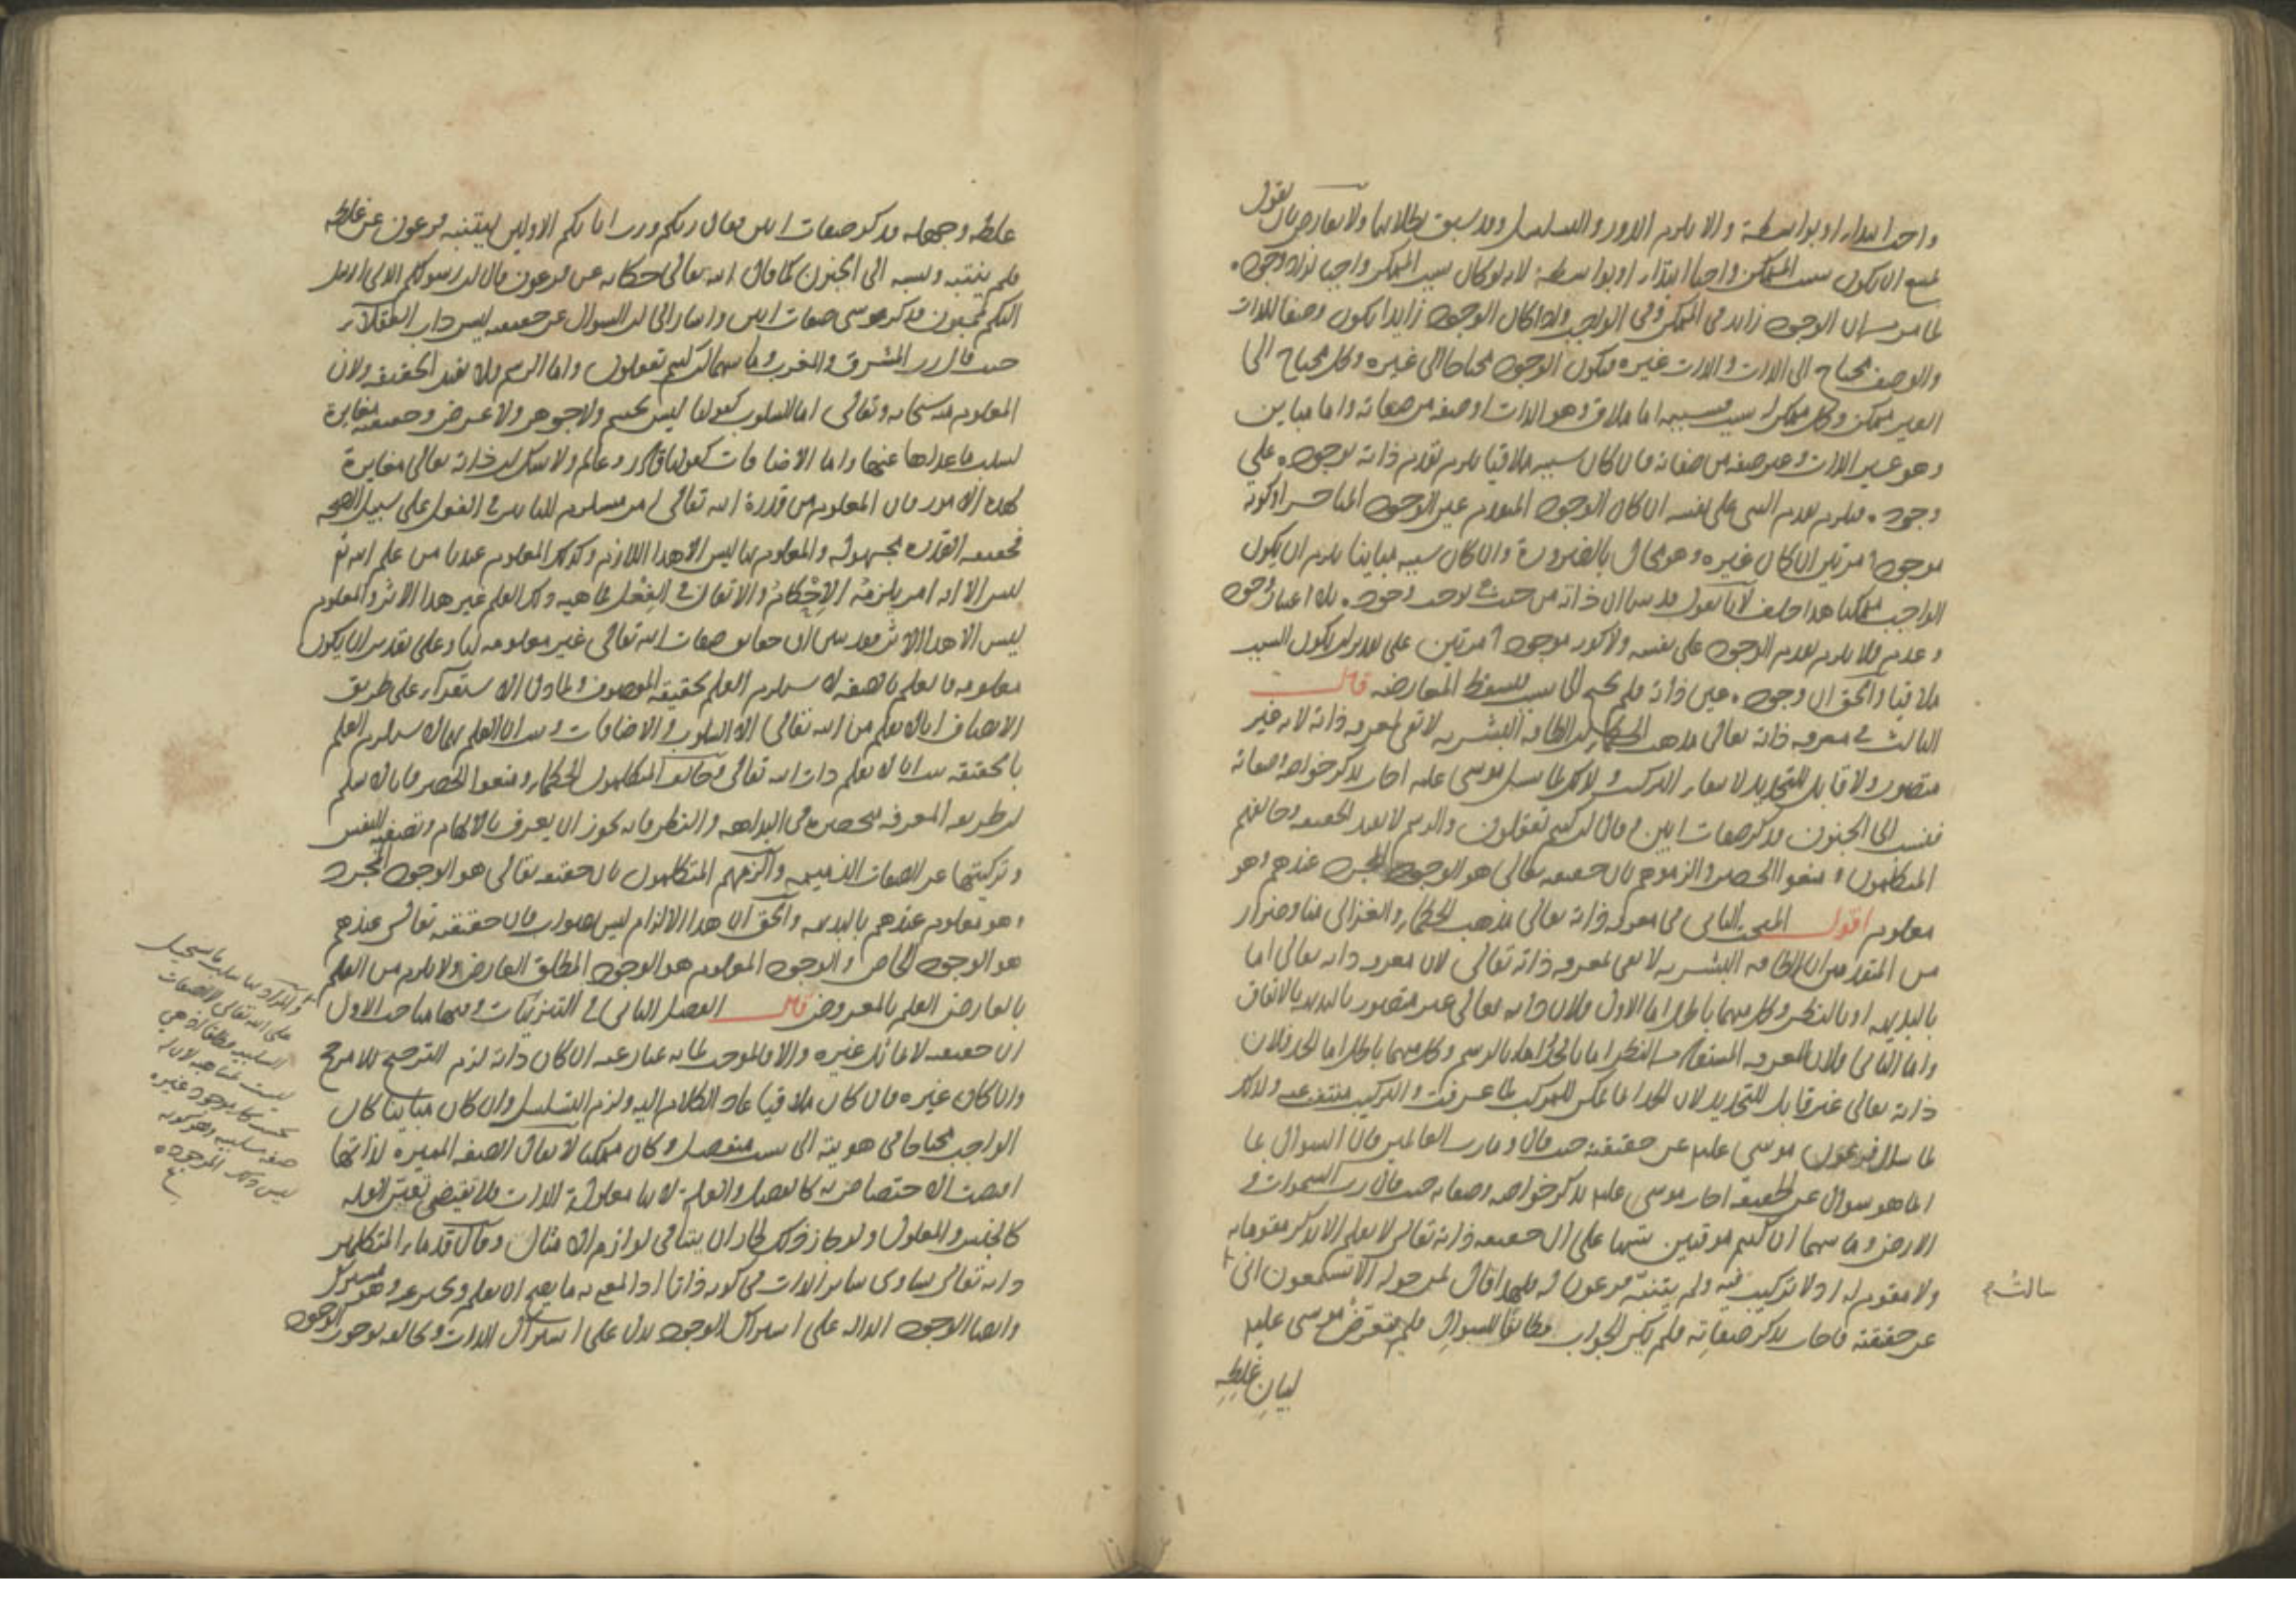 واحدا ابتداء او بواسطة والا يلزم الدور والتسلسل وقد سبق بطلانهما ولا يعارض بان يقول
يمتنع ان يكون سبب الممكن واجبا ابتداء او بواسطة لانه لو كان سبب الممكن واجبا لزاد وجوده
لما مر من ان الوجود زايد في الممكن وفي الواجب واذا كان الوجود زايدا يكون وصفا للذات
والوصف محتاج الى الذات والذات غيره فيكون الوجود محتاجا الى غيره وكل محتاج الى
الغير ممكن وكل ممكن له سبب فسببه اما ملاق وهو الذات او صفة من صفاته واما مباين
وهو غير الذات وغير صفة من صفاته فان كان سببه ملاقيا يلزم تقدم ذاته بوجوده على
وجوده فيلزم تقدم الشي على نفسه ان كان الوجود المتقدم عين الوجود المتاخر او كونه
موجودا مرتين ان كان غيره وهو محال بالضرورة وان كان سببه مباينا يلزم ان يكون
الواجب ممكنا هذا خلف لانا نقول قد بينا ان ذاته من حيث هي توجب وجوده بلا اعتبار وجود
وعدم فلا يلزم تقدم الوجود على نفسه ولا كونه موجودا مرتين على تقدير ان يكون السبب
ملاقيا والحق ان وجوده عين ذاته فلم يحتج الى سبب فسقط المعارضة قال
الثالث في معرفة ذاته تعالى مذهب الحكماء ان الطاقة البشرية لا تفي بمعرفة ذاته لانه غير
متصور ولا قابل للتحديد لانتفاء التركيب ولذلك لما سئل موسى عليه اجاب بذكر خواصه وصفاته
فنسب الى الجنون فذكر صفات ابين وقال ان كنتم تعقلون والرسم لا يفيد الحقيقة وخالفهم
المتكلمون ومنعوا الحصر والزموهم بان حقيقته تعالى هو الوجود المجرد عندهم وهو
معلوم اقول المبحث الثالث في معرفة ذاته تعالى مذهب الحكماء والغزالي منا وضرار
من المتقدمين ان الطاقة البشرية لا تفي بمعرفة ذاته تعالى لان معرفة ذاته تعالى اما
بالبديهة او بالنظر وكل منهما باطل اما الاول فلان ذاته تعالى غير متصور بالبديهة بالاتفاق
واما الثاني فلان المعرفة المستفادة من النظر اما بالحد واما بالرسم وكل منهما باطل اما الحد فلان
ذاته تعالى غير قابل للتحديد لان الحد انما يمكن للمركب لما عرفت والتركيب منتف عنه ولذلك
لما سال فرعون موسى عليه عن حقيقته حيث قال وما رب العالمين فان السوال بما
انما هو سوال عن الحقيقة اجاب موسى عليه بذكر خواصه وصفاته حيث قال رب السموات و
الارض وما بينهما ان كنتم موقنين تنبيها على ان حقيقة ذاته تعالى لا يعلم الا بذكر مقوماته
ولا مقوم له اذ لا تركيب فيه ولم يتنبه فرعون له فلهذا قال لمن حوله الا تستمعون اني
سالته
عن حقيقته فاجاب بذكر صفاته فلم يكن الجواب مطابقا للسوال فلم يتعرض موسى عليه
لبيان غلطه
غلطه وجهله فذكر صفات ابين فقال ربكم ورب ابائكم الاولين ليتنبه فرعون عن غلطه
فلم يتنبه ونسبه الى الجنون كما قال الله تعالى حكاية عن فرعون قال ان رسولكم الذي ارسل
اليكم لمجنون فذكر موسى صفات ابين واشار الى ان السوال عن حقيقته ليس داب العقلاء
حيث قال رب المشرق والمغرب وما بينهما ان كنتم تعقلون واما الرسم فلا يفيد الحقيقة ولان
المعلوم منه سبحانه وتعالى اما السلوب كقولنا ليس بجسم ولا جوهر ولا عرض وحقيقته مغايرة
لسلب ما عداها عنها واما الاضافات كقولنا قادر وعالم ولا شك ان ذاته تعالى مغايرة
لهذه الامور فان المعلوم من قدرة الله تعالى امر مستلزم للتاثير في الفعل على سبيل الصحة
فحقيقة القدرة مجهولة والمعلوم منها ليس الا هذا اللازم وكذلك المعلوم عندنا من علم الله تع
ليس الا انه امر يلزمه الإحكام والاتقان في الفعل فماهية ذلك العلم غير هذا الاثر والمعلوم
ليس الا هذا الاثر فقد بين ان حقايق صفات الله تعالى غير معلومة لنا وعلى تقدير ان يكون
معلومة فالعلم بالصفة لا يستلزم العلم بحقيقة الموصوف ولما دل الاستقراء على طريق
الانصاف انا لا نعلم من الله تعالى الا السلوب والاضافات وبينا ان العلم بها لا يستلزم العلم
بالحقيقة ثبت انا لا نعلم ذات الله تعالى وخالف المتكلمون الحكماء ومنعوا الحصر فانا لا نسلم
ان طريق المعرفة منحصرة في البداهة والنظر فانه يجوز ان يعرف بالالهام وتصفية النفس
وتزكيتها عن الصفات الذميمة والزمهم المتكلمون بان حقيقته تعالى هو الوجود المجرد
وهو معلوم عندهم بالبديهة والحق ان هذا الالزام ليس بصواب فان حقيقته تعالى عندهم
هو الوجود الخاص والوجود المعلوم هو الوجود المطلق العارض ولا يلزم من العلم
بالعارض العلم بالمعروض قال الفصل الثاني في التنزيهات وفيها مباحث الاول
ان حقيقته لا تماثل غيره والا فالموجب لما به يمتاز عنه ان كان ذاته لزم الترجيح بلا مرجح
وان كان غيره فان كان ملاقيا عاد الكلام اليه ولزم التسلسل وان كان مباينا كان
الواجب محتاجا في هويته الى سبب منفصل وكان ممكنا لا يقال الصفة المميزة لذاتها
اقتضت الاختصاص به كالفصل والعلة لانها معلولة الذات فلا تقتضي تعين العلة
كالجنس والمعلول ولو جاز ذلك لجاز ان يتنافى لوازم الامثال وقال قدماء المتكلمين
ذاته تعالى يساوي سائر الذوات في كونه ذاتا اذ المعني به ما يصح ان يعلم ويخبر عنه وهو مشترك
وايضا الوجوه الدالة على اشتراك الوجود تدل على اشتراك الذات ويخالفه بوجوب الوجود
والمراد بما سلب ما يستحيل
على الله تعالى لا الصفات
السلبية مطلقا اذ هي
ليست متناهية لان له
بحسب كل موجود غيره
صفة سلبية وهو كونه
ليس ذلك الموجود